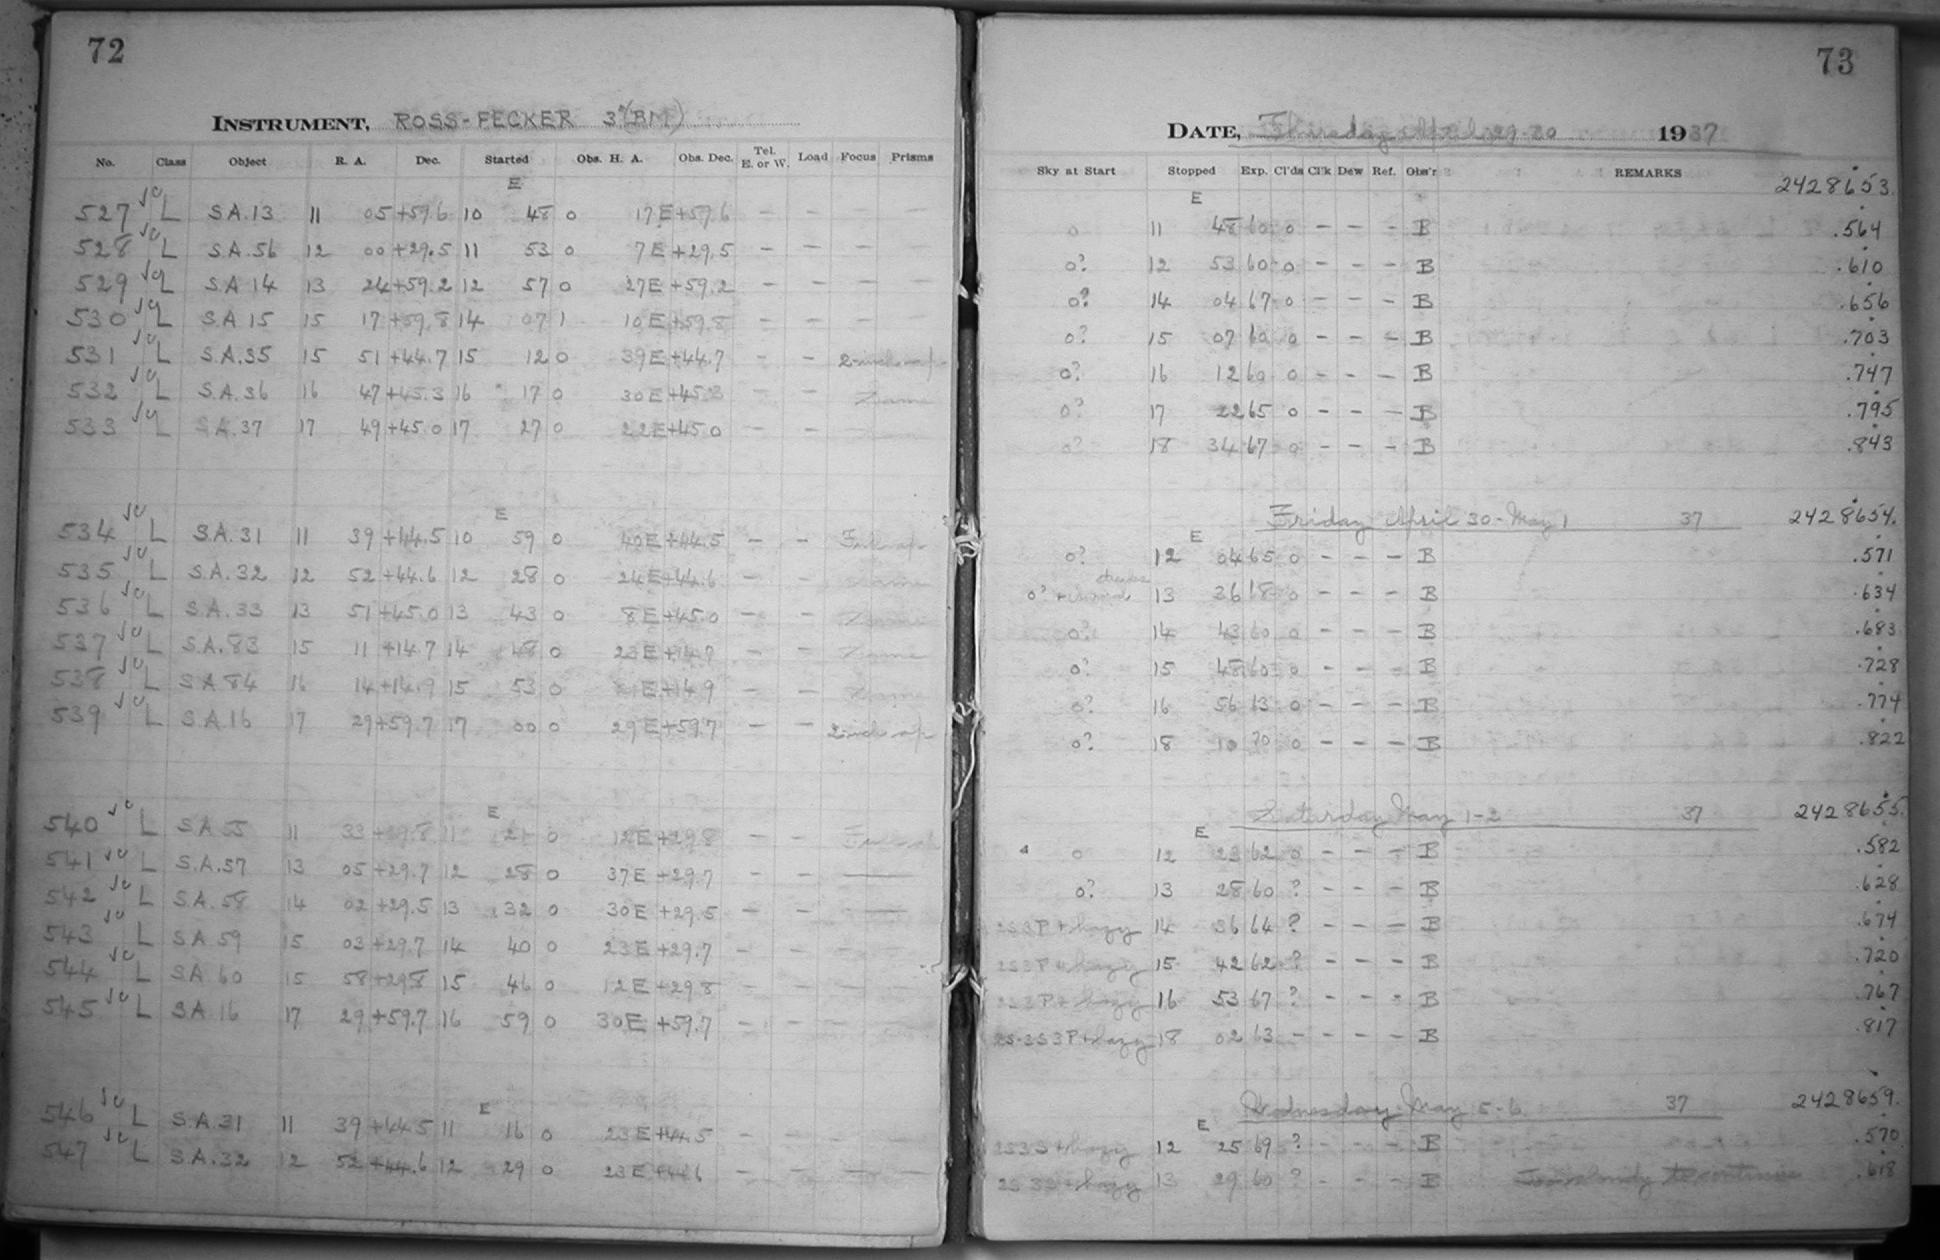 72
INSTRUMENT, ROSS-FECKER 3"(BM)
No. Class Object R. A. Dec. Started Obs. H. A. Obs. Dec. Tel. E. or W. Load Focus Prisms
E
527 L S.A.13 11 05 +59.6 10 48 0 17E +59.6 – – –
528 L S.A.56 12 00 +29.5 11 53 0 7E +29.5 – – –
529 L S.A 14 13 24 +59.2 12 57 0 27E +59.2 – – – –
530 L S.A 15 15 17 +59.8 14 07 1 10E +59.8 – – – –
531 L S.A.35 15 51 +44.7 15 12 0 39E +44.7 – – 2-inch ap
532 L S.A.36 16 47 +45.3 16 17 0 30E +45.3 – – same
533 L S.A.37 17 49 +45.0 17 27 0 22E +45.0 – –
E
534 L S.A.31 11 39 +44.5 10 59 0 40E +44.5 – –
535 L S.A.32 12 52 +44.6 12 28 0 24E +44.6 – – same
536 L S.A.33 13 51 +45.0 13 43 0 8E +45.0 – – same
537 L S.A.83 15 11 +14.7 14 48 0 23E +14.7 – – same
538 L S.A.84 16 14 +14.9 15 53 0 E +14.9 – – same
539 L S.A.16 17 29 +59.7 17 00 0 29E +59.7 – – 2-inch ap
E
540 L S.A.55 11 33 +29.8 11 21 0 12E +29.8 – –
541 L S.A.57 13 05 +29.7 12 28 0 37E +29.7 – – —
542 L S.A.58 14 02 +29.5 13 32 0 30E +29.5 – – —
543 L S.A 59 15 03 +29.7 14 40 0 23E +29.7 – – – –
544 L S.A 60 15 58 +29.8 15 46 0 12E +29.8 – – – –
545 L S.A 16 17 29 +59.7 16 59 0 30E +59.7 – – – –
E
546 L S.A.31 11 39 +44.5 11 16 0 23E +44.5 – – – –
547 L S.A.32 12 52 +44.6 12 29 0 23E +44.6 – – – –
73
DATE, Thursday April 29-30 1937
Sky at Start Stopped Exp. Cl'ds Cl'k Dew Ref. Obs'r REMARKS 2428653.
E
0 11 48 60 0 – – – B .564
0? 12 53 60 0 – – – B .610
0? 14 04 67 0 – – – B .656
0? 15 07 60 0 – – – B .703
0? 16 12 60 0 – – – B .747
0? 17 22 65 0 – – – B .795
0? 18 34 67 0 – – – B .843
Friday April 30 - May 1 37 2428654.
E
0? 12 04 65 0 – – – B .571
0? 13 36 68 0 – – – B .634
0? 14 43 60 0 – – – B .683
0? 15 48 60 0 – – – B .728
0? 16 56 63 0 – – – B .774
0? 18 10 70 0 – – – B .822
Saturday May 1-2 37 2428655.
E
0 12 23 62 0 – – – B .582
0? 13 28 60 ? – – – B .628
2S3P + hazy 14 36 64 ? – – – B .674
2S3P + hazy 15 42 62 ? – – – B .720
2S3P + hazy 16 53 67 ? – – – B .767
2S-3S3P + hazy 18 02 63 – – – – B .817
Wednesday May 5-6 37 2428659.
E
2S3S + hazy 12 25 69 ? – – – B .570
2S3S + hazy 13 29 60 ? – – – B Too cloudy to continue .618